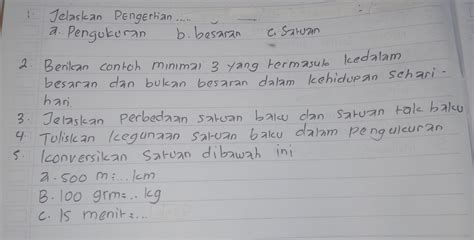 1. Jelaskan Pengertian ....
a. Pengukuran b. besaran c. Satuan
2. Berikan contoh minimal 3 yang termasuk kedalam
besaran dan bukan besaran dalam kehidupan sehari-
hari
3. Jelaskan Perbedaan satuan baku dan satuan tak baku
4. Tuliskan kegunaan satuan baku dalam pengukuran
5. Konversikan Satuan dibawah ini
a. 500 m = ... km
B. 100 grm = .. kg
c. 15 menit = ...